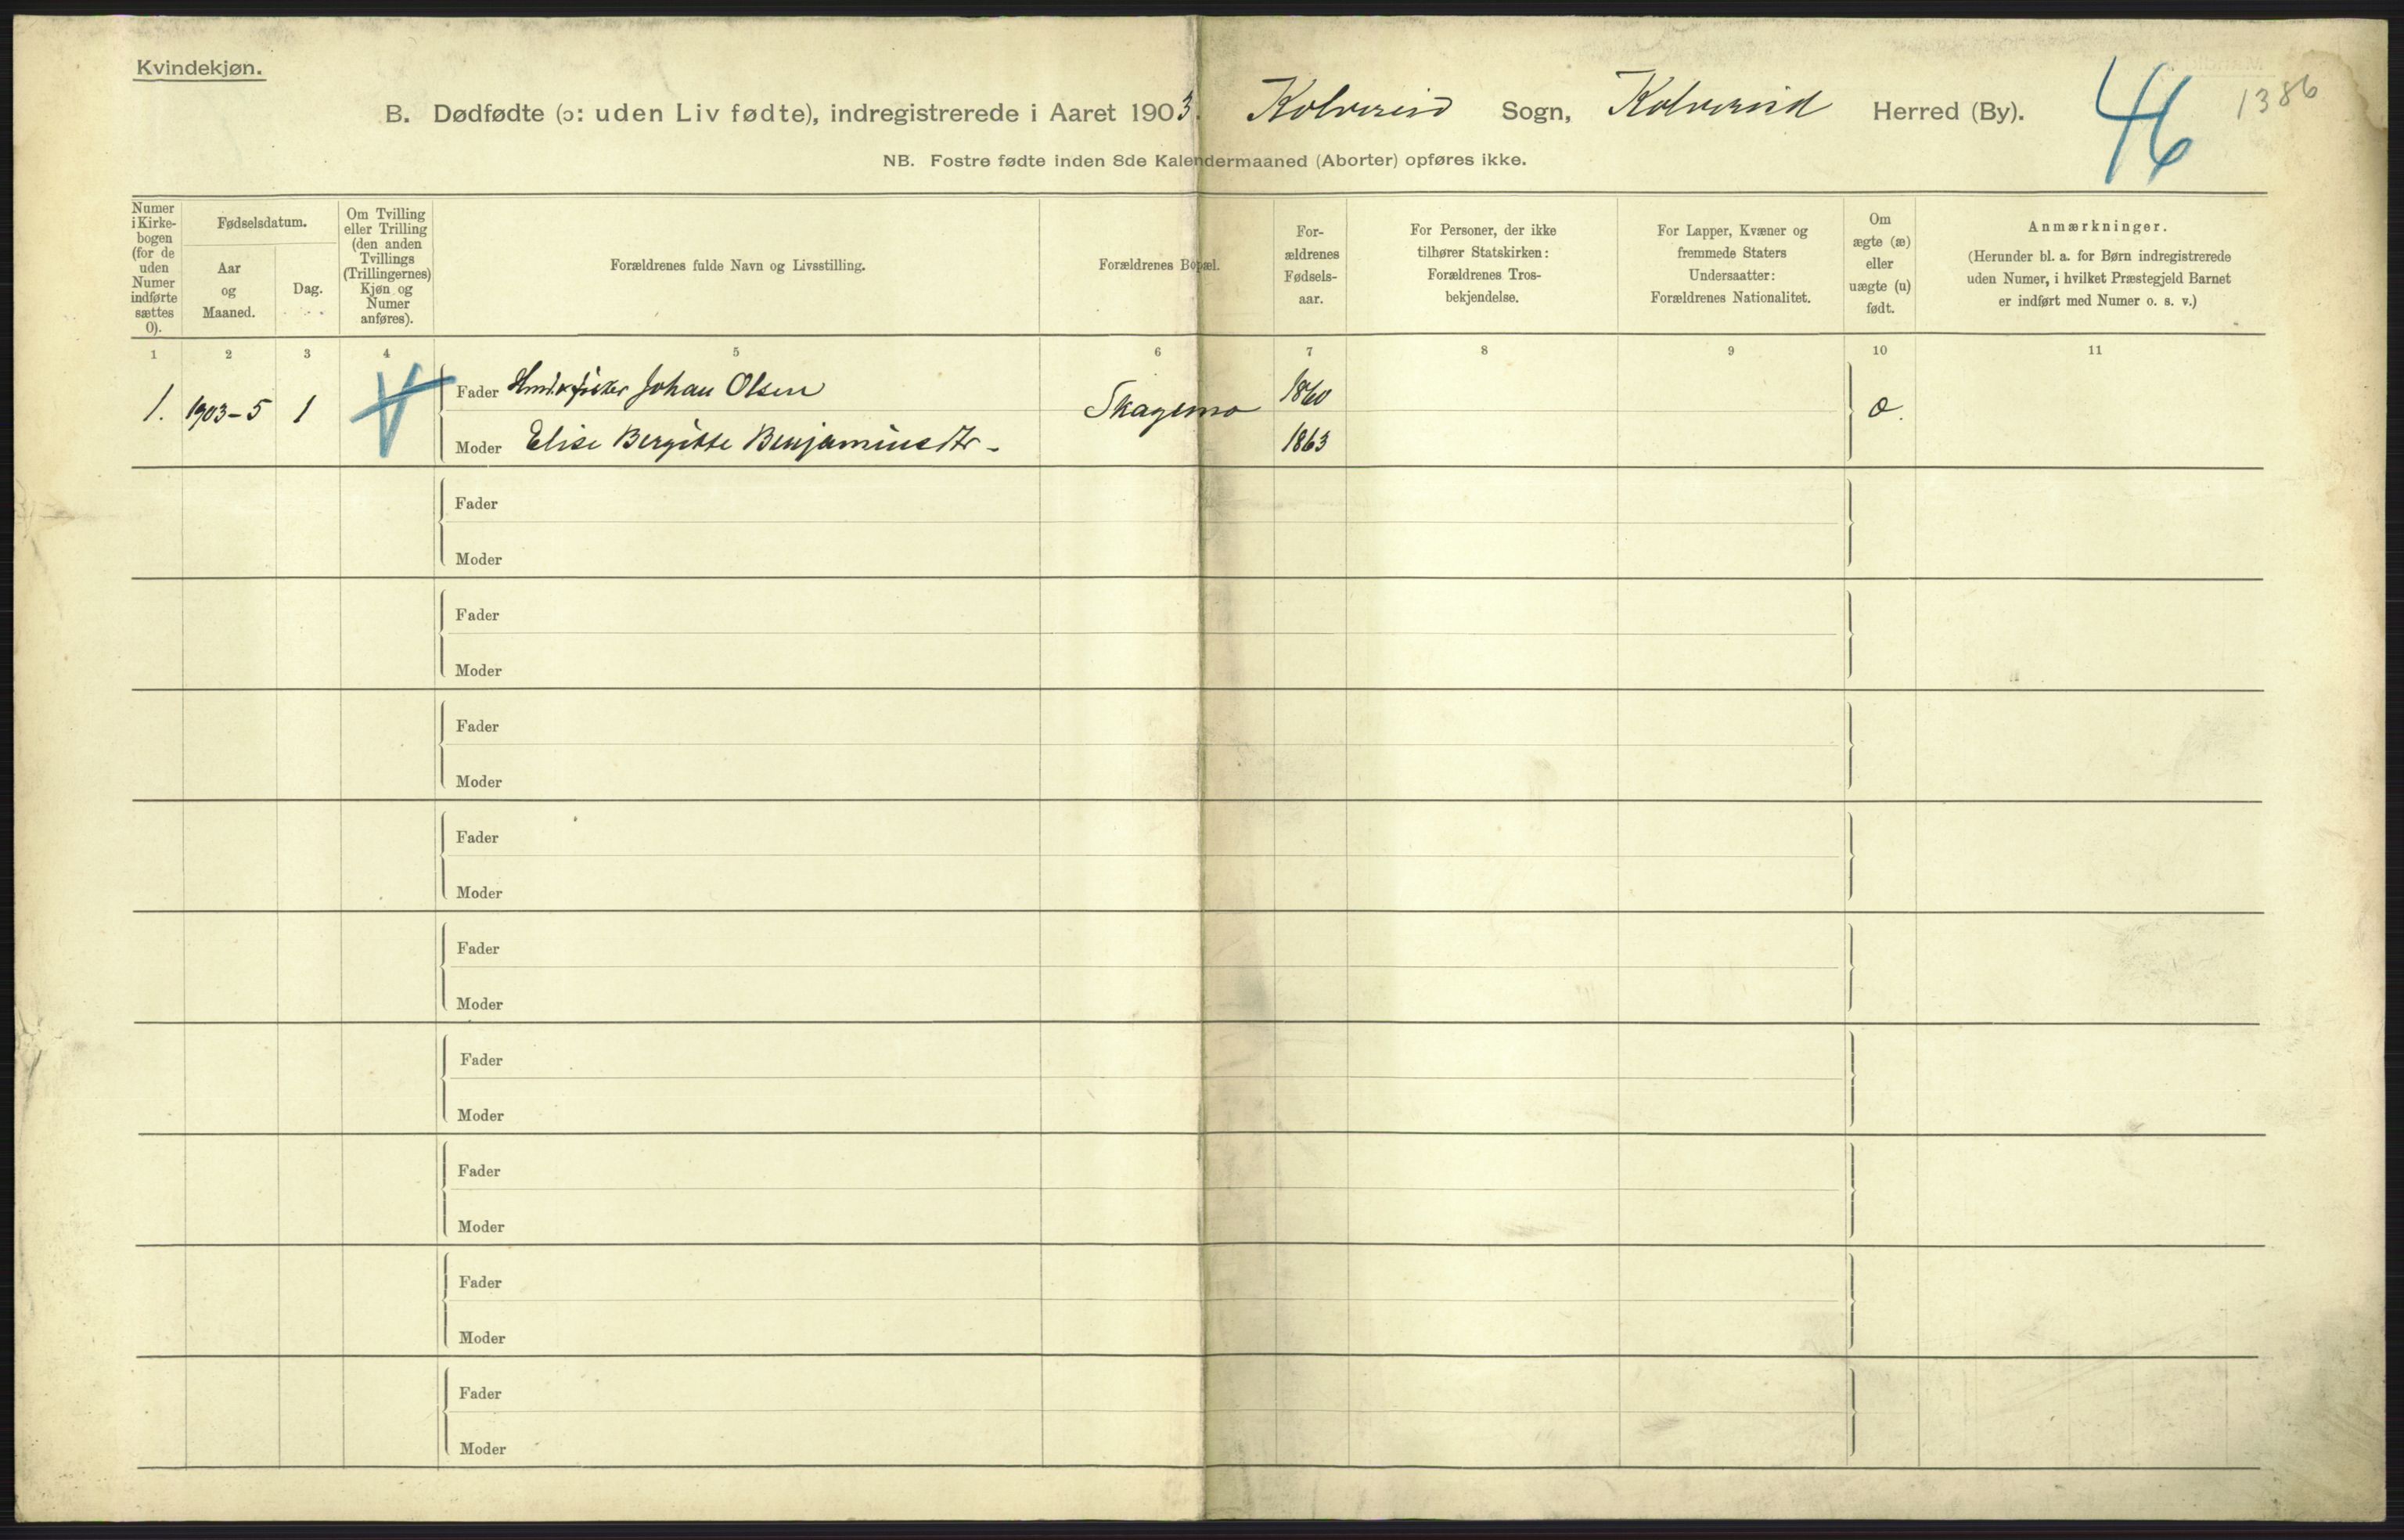 Kvindekjøn.
B. Dødfødte (ɔ: uden Liv fødte), indregistrerede i Aaret 1903. Kolvereid Sogn, Kolvereid Herred (By).
46
1386
NB. Fostre fødte inden 8de Kalendermaaned (Aborter) opføres ikke.
Numer i Kirke-bogen (for de uden Numer indførte sættes 0).
Fødselsdatum.
Aar og Maaned.
Dag.
Om Tvilling eller Trilling (den anden Tvillings (Trillingernes) Kjøn og Numer anføres).
Forældrenes fulde Navn og Livsstilling.
Forældrenes Bopæl.
For-ældrenes Fødsels-aar.
For Personer, der ikke tilhører Statskirken: Forældrenes Tros-bekjendelse.
For Lapper, Kvæner og fremmede Staters Undersaatter: Forældrenes Nationalitet.
Om ægte (æ) eller uægte (u) født.
Anmærkninger.
(Herunder bl. a. for Børn indregistrerede uden Numer, i hvilket Præstegjeld Barnet er indført med Numer o. s. v.)
1 2 3 4 5 6 7 8 9 10 11
Fader Johan Olsen 1860
1. 1903-5 1 Skagemo
Moder Elise Bergitte Benjaminsdtr - 1863
Fader
Moder
Fader
Moder
Fader
Moder
Fader
Moder
Fader
Moder
Fader
Moder
Fader
Moder
Fader
Moder
Fader
Moder